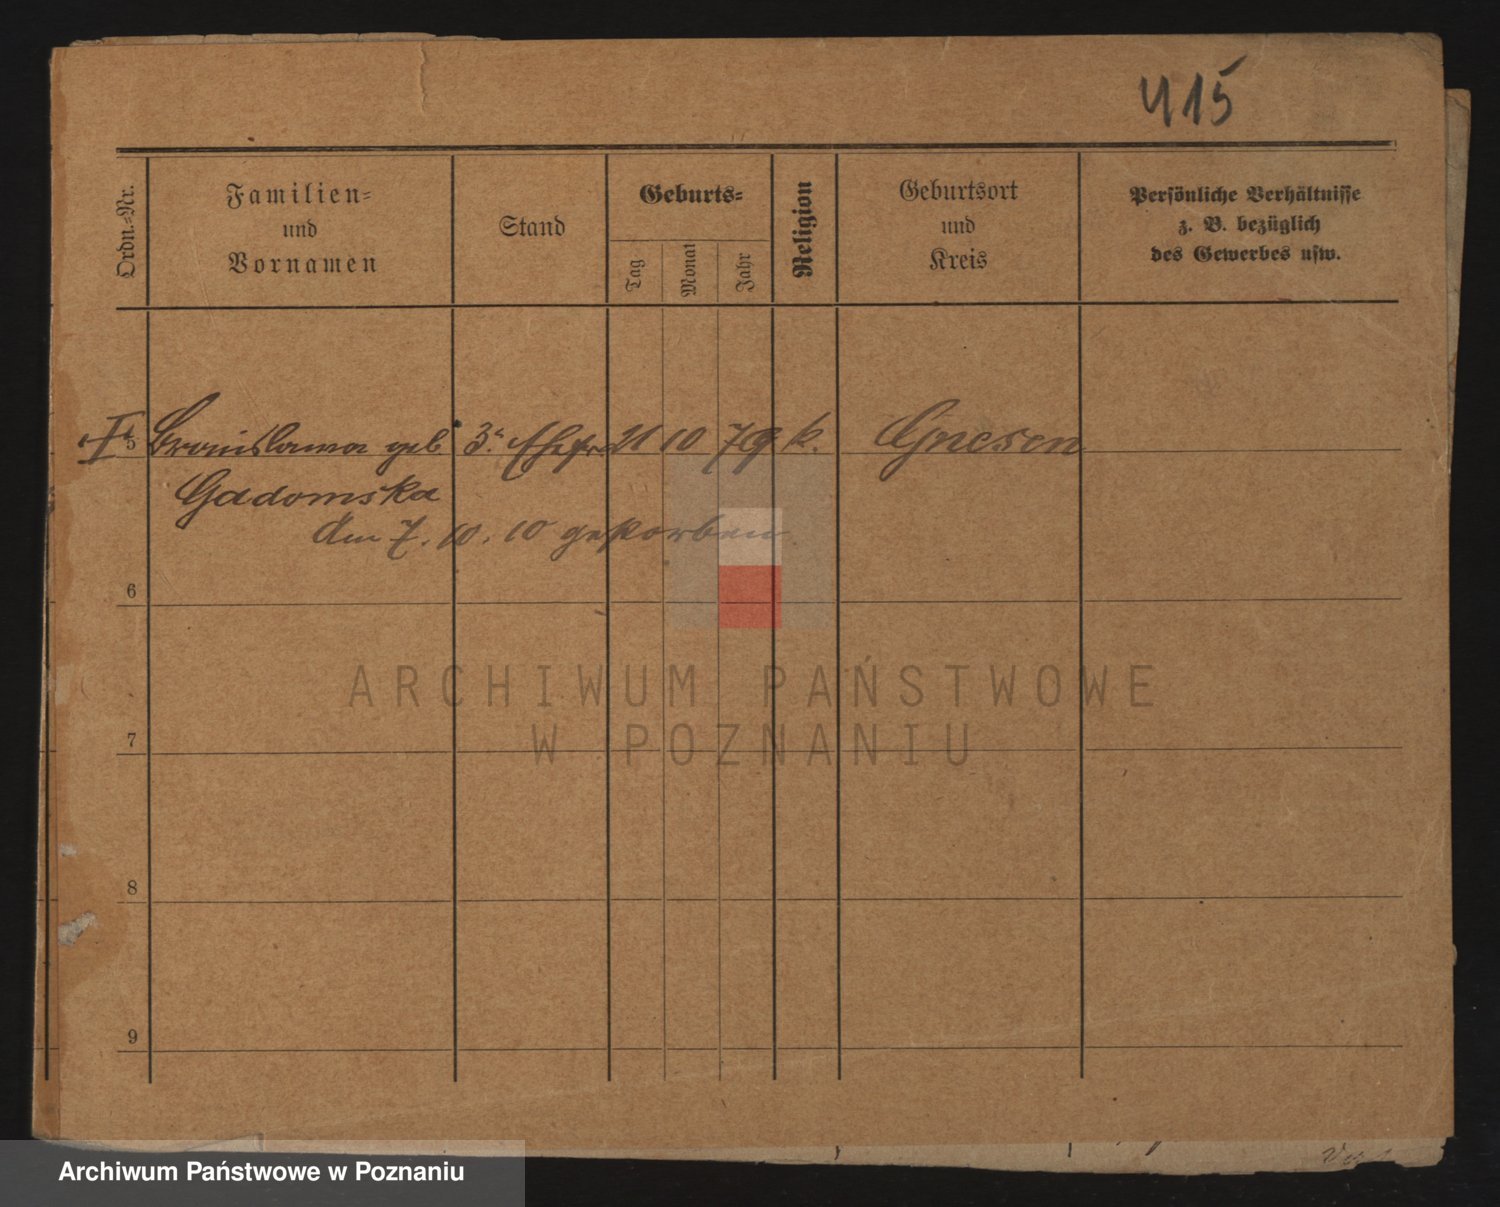 415
Ordn.-Nr.
Familien-
und
Vornamen
Stand
Geburts-
Tag
Monat
Jahr
Religion
Geburtsort
und
Kreis
Persönliche Verhältnisse
z. B. bezüglich
des Gewerbes usw.
5 Bronislawa geb 3. Ehefra 21 10 79 k. Gnesen
Gadomska
Am 7. 10. 10 gestorben.
6
7
8
9
ARCHIWUM PAŃSTWOWE
W POZNANIU
Archiwum Państwowe w Poznaniu